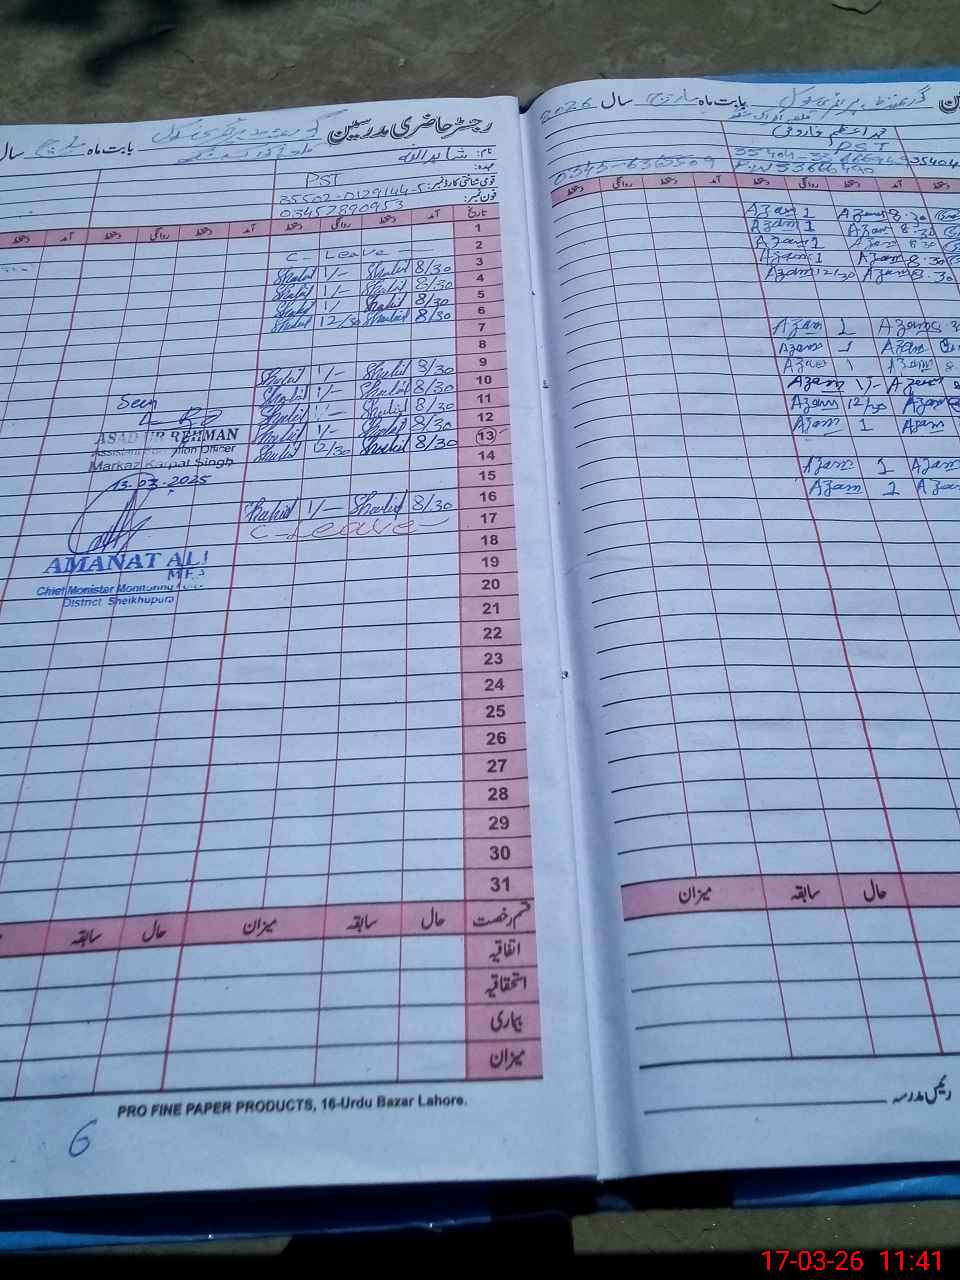 رجسٹر حاضری مدرسین
بابت ماہ
سال
نام: شاہد اللہ
عہدہ:
PST
قومی شناختی کارڈ نمبر: 35502-0129144-5
فون نمبر: 03457890953
تاریخ آمد دستخط روانگی دستخط آمد دستخط روانگی دستخط آمد دستخط
1
2 C- Leave
3 Shahid 1/- Shahid 8/30
4 Shahid 1/- Shahid 8/30
5 Shahid 1/- Shahid 8/30
6 Shahid 12/30 Shahid 8/30
7
8
9 Shahid 1/- Shahid 8/30
10 Shahid 1/- Shahid 8/30
11 Shahid 1/- Shahid 8/30
12 Shahid 1/- Shahid 8/30
13 Shahid 12/30 Shahid 8/30
14
15
16 Shahid 1/- Shahid 8/30
17 C-Leave
18
19
20
21
22
23
24
25
26
27
28
29
30
31
Seen
ASAD UR REHMAN
Markaz Karpal Singh
13-03-2025
AMANAT ALI
Chief Monister Monitoring
District Sheikhupura
قسم رخصت حال سابقہ میزان حال سابقہ
اتفاقیہ
استحقاقیہ
بیماری
میزان
PRO FINE PAPER PRODUCTS, 16-Urdu Bazar Lahore.
6
بابت ماہ مارچ سال 2026
PST
دستخط آمد دستخط روانگی دستخط آمد دستخط روانگی دستخط
Azam 1 Azam 8.30
Azam 1 Azam 8.30
Azam 1 Azam 8.30
Azam 1 Azam 8.30
Azam 12/30 Azam 8.30
Azam 1 Azam
Azam 1 Azam
Azam 1 Azam
Azam 1/- Azam
Azam 12/30 Azam
Azam 1 Azam
Azam 1 Azam
Azam 1 Azam
حال سابقہ میزان
رئیس مدرسہ
17-03-26 11:41